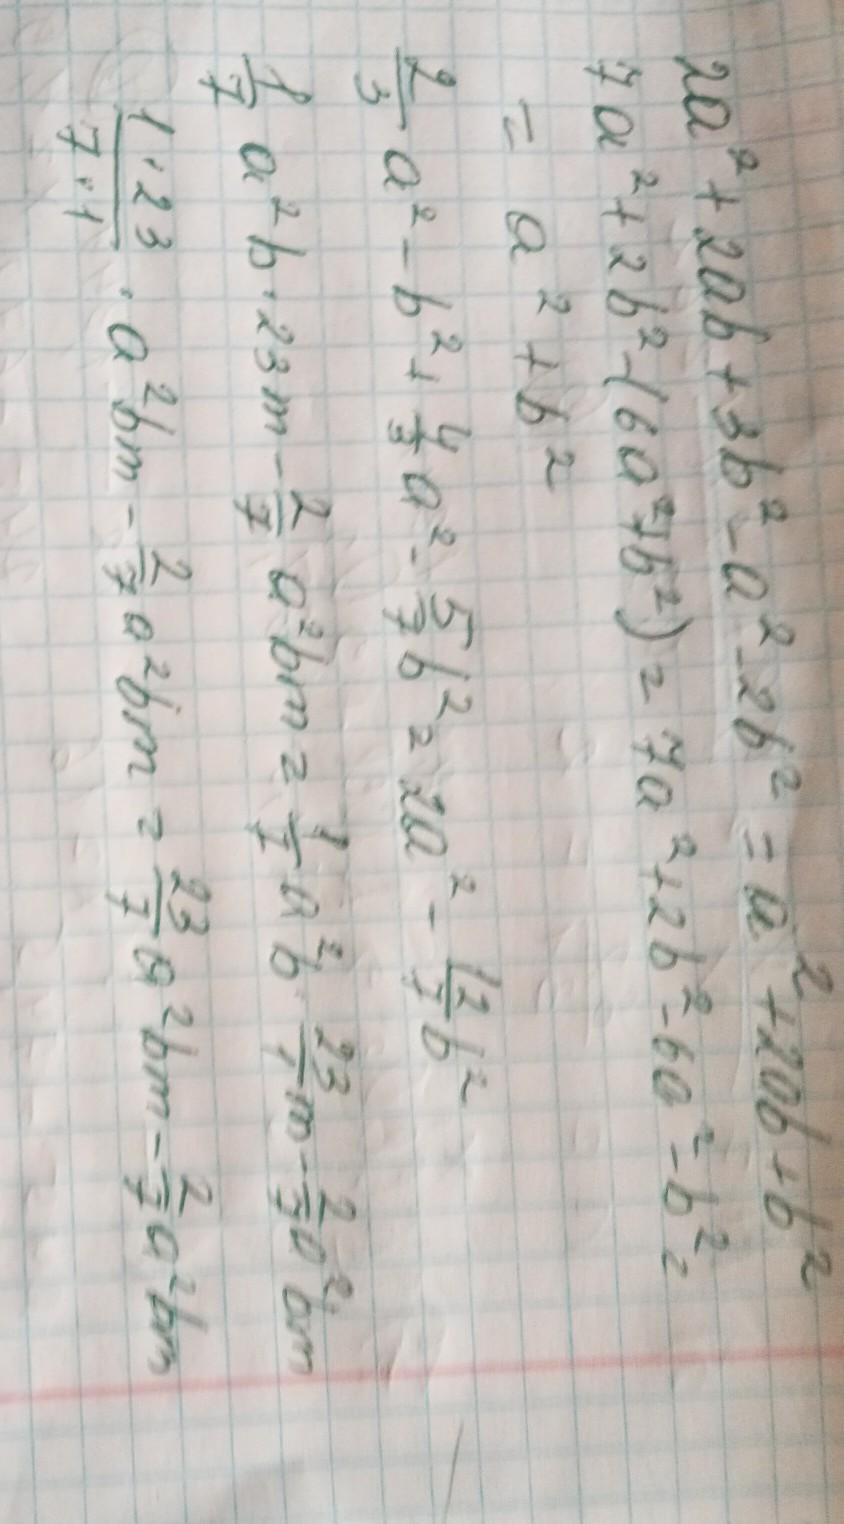 2a² + 2ab + 3b² - a² - 2b² = a² + 2ab + b²
7a² + 2b² - (6a² + b²) = 7a² + 2b² - 6a² - b² =
= a² + b²
2/3 a² - b² + 4/3 a² - 5/7 b² = 2a² - 12/7 b²
1/7 a²b · 23m - 2/7 a²bm = 1/7 a²b 23/1 m - 2/7 a²bm
1·23/7·1 · a²bm - 2/7 a²bm = 23/7 a²bm - 2/7 a²bm